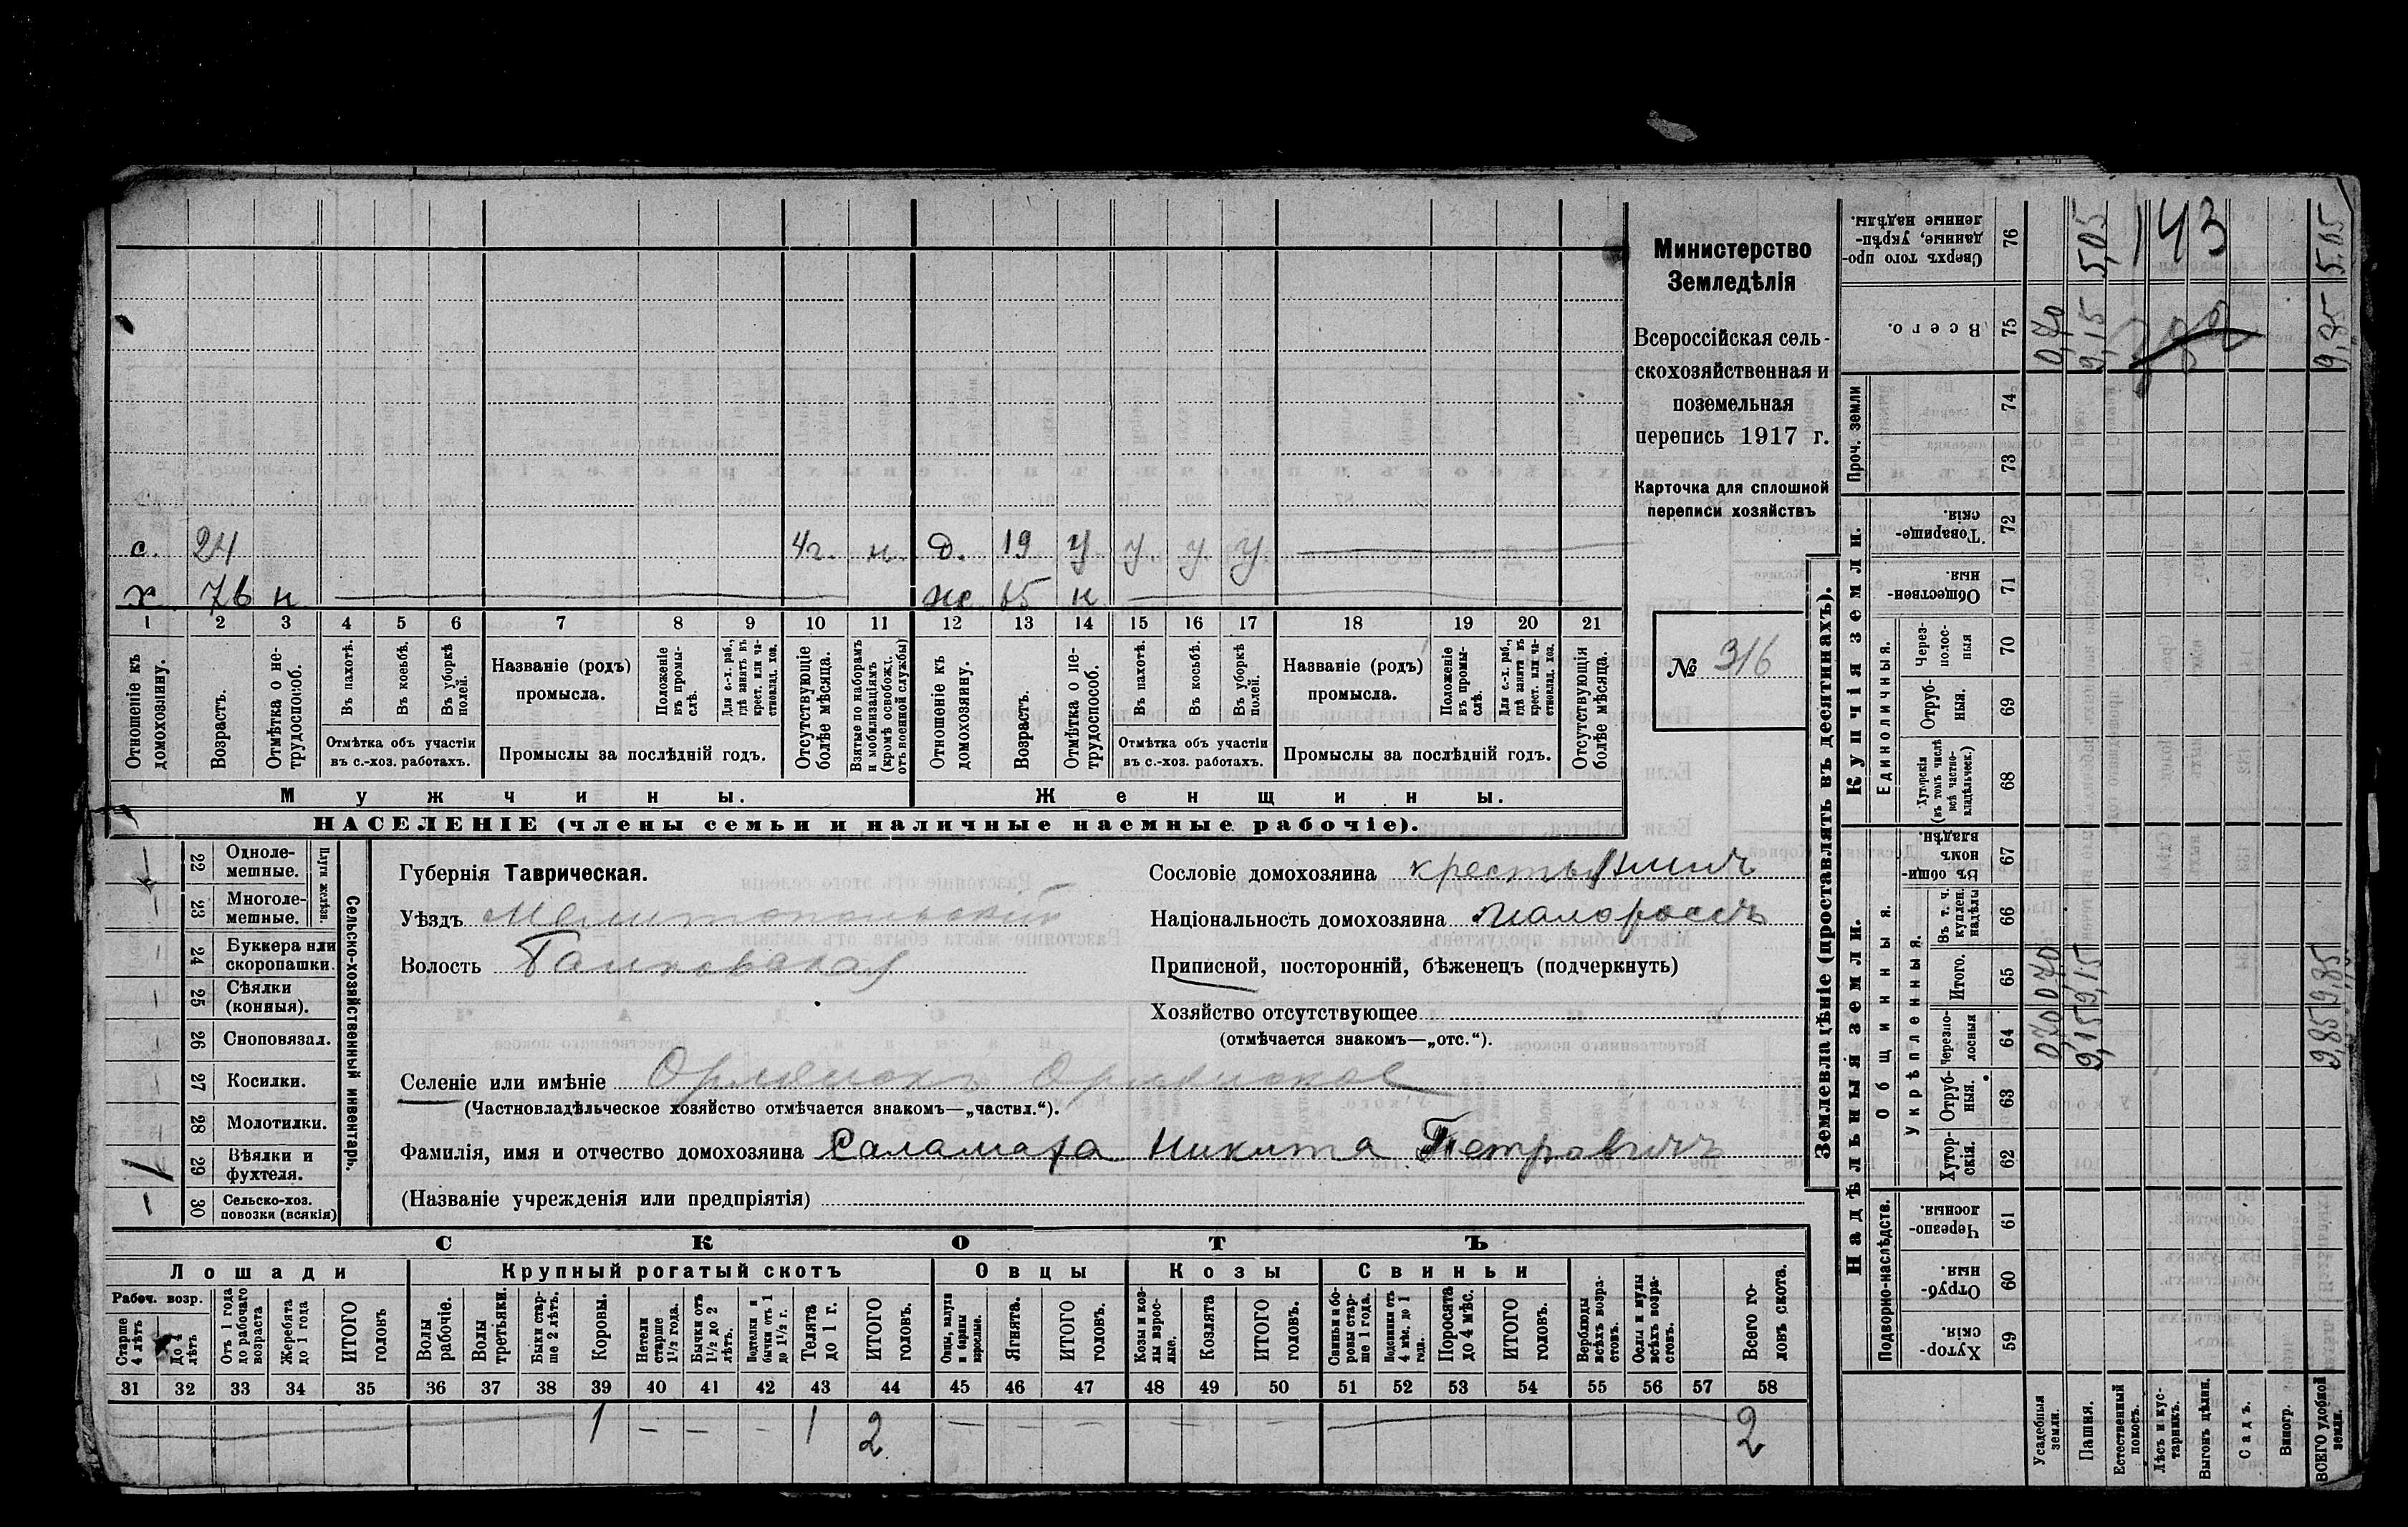 с. 24 4г. н д. 19 у у у у
х 76 н ж 65 н
1 2 3 4 5 6 7 8 9 10 11 12 13 14 15 16 17 18 19 20 21
Отношеніе къ домохозяину.
Возрастъ.
Отмѣтка о нетрудоспособ.
Въ пахотѣ.
Въ косьбѣ.
Въ уборкѣ полей.
Отмѣтка объ участіи
въ с.-хоз. работахъ.
Названіе (родъ)
промысла.
Положеніе въ промыслѣ.
Для с.-х. раб., гдѣ занятъ въ крест. или частновлад. хоз.
Промыслы за послѣдній годъ.
Отсутствующіе болѣе мѣсяца.
Взятые по наборамъ и мобилизаціямъ (кромѣ освобожд. отъ военной службы)
Отношеніе къ домохозяину.
Возрастъ.
Отмѣтка о нетрудоспособ.
Въ пахотѣ.
Въ косьбѣ.
Въ уборкѣ полей.
Отмѣтка объ участіи
въ с.-хоз. работахъ.
Названіе (родъ)
промысла.
Положеніе въ промыслѣ.
Для с.-х. раб., гдѣ занята въ крест. или частновлад. хоз.
Промыслы за послѣдній годъ.
Отсутствующія болѣе мѣсяца.
Мужчины. Женщины.
НАСЕЛЕНІЕ (члены семьи и наличные наемные рабочіе).
Министерство
Земледѣлія
Всероссійская сель-
скохозяйственная и
поземельная
перепись 1917 г.
Карточка для сплошной
переписи хозяйствъ
№ 316
Сельско-хозяйственный инвентарь.
22 Одноле-
мешные.
23 Многоле-
мешные.
24 Буккера или
скоропашки.
25 Сѣялки
(конныя).
26 Сноповязал.
27 Косилки.
28 Молотилки.
29 Вѣялки и
фухтеля. 1
30 Сельско-хоз.
повозки (всякія) 1
Губернія Таврическая.
Уѣздъ Мелитопольскій
Волость
Селеніе или имѣніе Орлянскъ
(Частновладѣльческое хозяйство отмѣчается знакомъ—„частвл.“).
Фамилія, имя и отчество домохозяина Саламаха Никита Петровичъ
(Названіе учрежденія или предпріятія)
Сословіе домохозяина крестьянинъ
Національность домохозяина малороссъ
Приписной, посторонній, бѣженецъ (подчеркнуть)
Хозяйство отсутствующее
(отмѣчается знакомъ—„отс.“).
СКОТЪ
Лошади Крупный рогатый скотъ Овцы Козы Свиньи
Рабоч. возр.
Старше 4 лѣтъ
До 4 лѣтъ
Отъ 1 года до рабочаго возраста
Жеребята до 1 года
ИТОГО головъ
Волы рабочіе.
Волы третьяки.
Быки старше 2 лѣтъ.
Коровы.
Нетели старше 1 1/2 года.
Бычки отъ 1 1/2 до 2 лѣтъ.
Подтелки и бычки отъ 1 до 1 1/2 г.
Телята до 1 г.
ИТОГО головъ.
Овцы, валухи и бараны взрослые.
Ягнята.
ИТОГО головъ.
Козы и козлы взрослые.
Козлята
ИТОГО головъ.
Свиньи и боровы старше 1 года.
Подсвинки отъ 4 мѣс. до 1 года.
Поросята до 4 мѣс.
ИТОГО головъ.
Верблюды всѣхъ возрастовъ.
Ослы и мулы всѣхъ возрастовъ.
Всего головъ скота.
31 32 33 34 35 36 37 38 39 40 41 42 43 44 45 46 47 48 49 50 51 52 53 54 55 56 57 58
1 – – – 1 2 – – – – – 2
Землевладѣніе (проставлять въ десятинахъ).
Надѣльныя земли. Купчія земли. Проч. земли
Подворно-наслѣдств. Общинныя. Единоличныя.
Укрѣпленныя.
Хуторскія. 59
Отрубныя. 60
Черезполосныя. 61
Хуторскія. 62
Отрубныя. 63
Черезполосныя 64
Итого. 65
Въ т. ч. куплен. надѣлы 66
Въ общинномъ владѣн. 67
Хуторскія (въ томъ числѣ всѣ частновладѣльческ.) 68
Отрубныя. 69
Черезполосныя 70
Общественныя. 71
Товарищескія. 72
73
74
Всего. 75
Сверхъ того проданные, укрѣпленные надѣлы. 76
Усадебныя земли. 0,70 0,70 0,70
Пашня. 9,15 9,15 9,15 5,05
Естественный покосъ.
Лѣсъ и кустарникъ.
Выгонъ цѣлин.
Садъ.
Виногр.
ВСЕГО удобной земли. 9,85 9,85 9,85 5.05
143